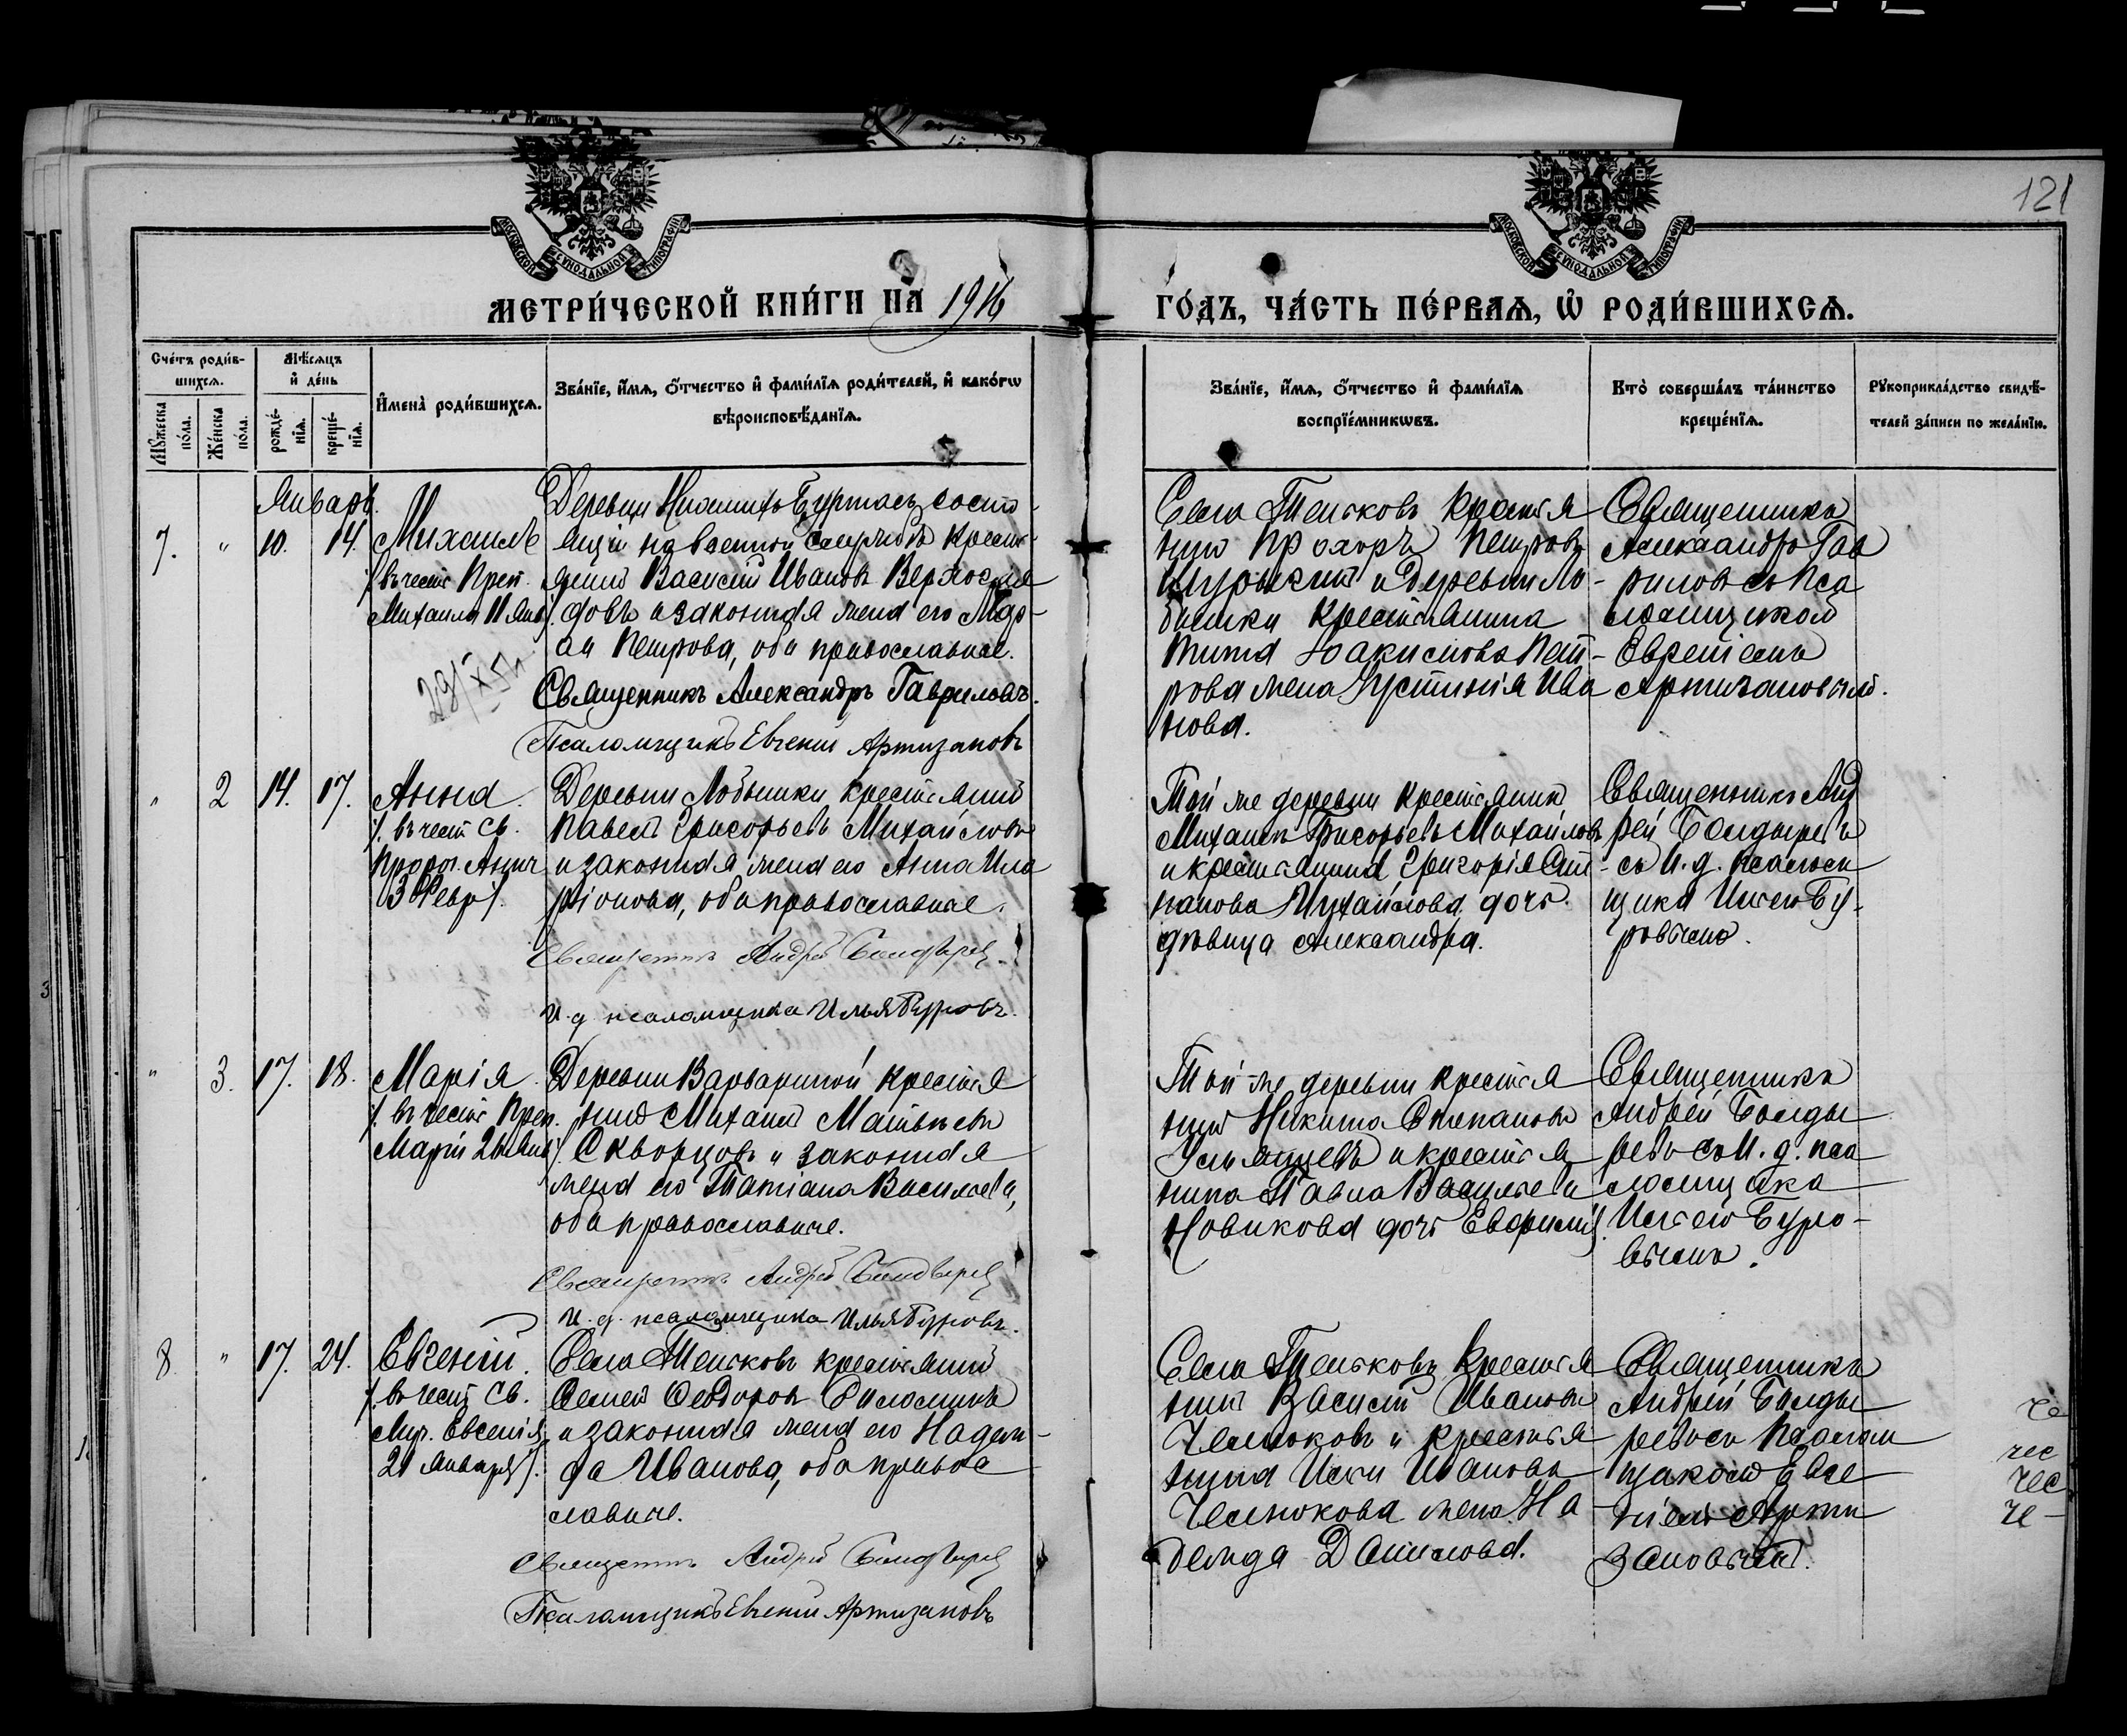 121
МОСКОВСКОЙ СѴНОДАЛЬНОЙ ТИПОГРАФІИ
МОСКОВСКОЙ СѴНОДАЛЬНОЙ ТИПОГРАФІИ
МЕТРИ́ЧЕСКОЙ КНИ́ГИ НА 1916
ГО́ДЪ, ЧА́СТЬ ПЕ́РВАѦ, Ѡ҆ РОДИ́ВШИХСѦ.
Сче́тъ роди́в-
шихсѧ.
Мѣ́сѧцъ
и҆ де́нь
Мꙋ́жеска
по́ла.
Же́нска
по́ла.
рожде́-
нїѧ.
креще́-
нїѧ.
И҆мена̀ роди́вшихсѧ.
Зва́нїе, и҆́мѧ, ѻ҆́тчество и҆ фами́лїѧ роди́телей, и҆ како́гѡ
вѣроисповѣ́данїѧ.
Зва́нїе, и҆́мѧ, ѻ҆́тчество и҆ фами́лїѧ
воспрїе́мникѡвъ.
Кто̀ соверша́лъ та́инство
креще́нїѧ.
Рꙋкоприкла́дство свидѣ́-
телей за́писи по жела́нїю.
Январь.
7. " 10. 14.
Михаилъ
/въ честь Преп.
Михаила 11 Янв/.
28/X 5
Деревни Буртасъ состо-
ящій на военной службѣ кресть-
янинъ Василій Ивановъ
довъ и законная жена его Мар-
ѳа Петрова, оба православные.
Священникъ Александръ Гавриловъ.
Псаломщикъ Евгеній Артизановъ
Села Теньковъ крестья
нинъ Прохоръ Петровъ
и деревни Ло-
бышки крестьянина
Іоакимова Пет-
рова жена Устинія Ива
нова.
Священникъ
Александръ Гав
риловъ съ пса
ломщикомъ
Евгеніемъ
Артизановымъ.
" 2 14. 17.
Анна.
/. въ честь Св.
Прор. Анны
3 Февр/.
Деревни Лобышки крестьянинъ
Павелъ Григорьевъ Михайловъ
и законная жена его Анна Ила
ріонова, оба православные.
Священникъ Андрей Болдыревъ.
И. д. псаломщика Илья Буровъ.
Той же деревни крестьянинъ
Михаилъ Григорьевъ Михайловъ
и крестьянина Григорія Сте-
панова Михайлова дочь
дѣвица Александра.
Священникъ Анд
рей Болдыревъ
съ И. д. псалом
щика Ильею Бу-
ровымъ.
" 3. 17. 18.
Марія.
/. въ честь Преп.
Маріи 26 Янв/.
Деревни Варвариной крестья
нинъ Михаилъ Матвѣевъ
Скворцовъ и законная
жена его Татіана Васильева,
оба православные.
Священникъ Андрей Болдыревъ
И. д. псаломщика Илья Буровъ.
Той-же деревни крестья
нинъ Никита Степановъ
и крестья
нина Павла Васильева
Новикова дочь Евфимія.
Священникъ
Андрей Болды
ревъ съ И. д. пса
ломщика
Ильею Буро-
вымъ.
8 " 17. 24.
Евгеній.
/. въ честь Св.
Муч. Евгенія
21 Января/.
Села Теньковъ крестьянинъ
Семенъ Ѳеодоровъ
и законная жена его Надеж-
да Иванова, оба правос
лавные.
Священникъ Андрей Болдыревъ
Псаломщикъ Евгеній Артизановъ
Села Теньковъ крестья
нинъ Василій Ивановъ
Чесноковъ и крестья
нина Ивана Иванова
Чеснокова жена На
дежда Данилова.
Священникъ
Андрей Болды
ревъ съ псалом
щикомъ Евге
ніемъ Арти
зановымъ.
че
чес
чес
че-